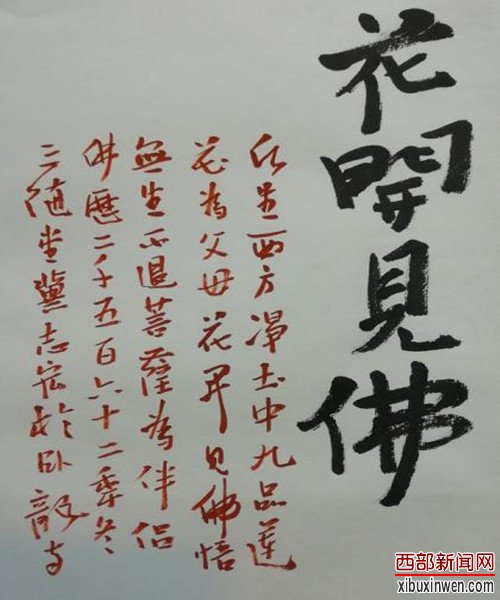 花開見佛
生西方淨土中九品蓮
花為父母花开見佛悟
無生不退菩薩為伴侶
佛歷二千五百六十二年冬
三随堂冀志宏於卧龍寺
西部新闻网
xibuxinwen.com